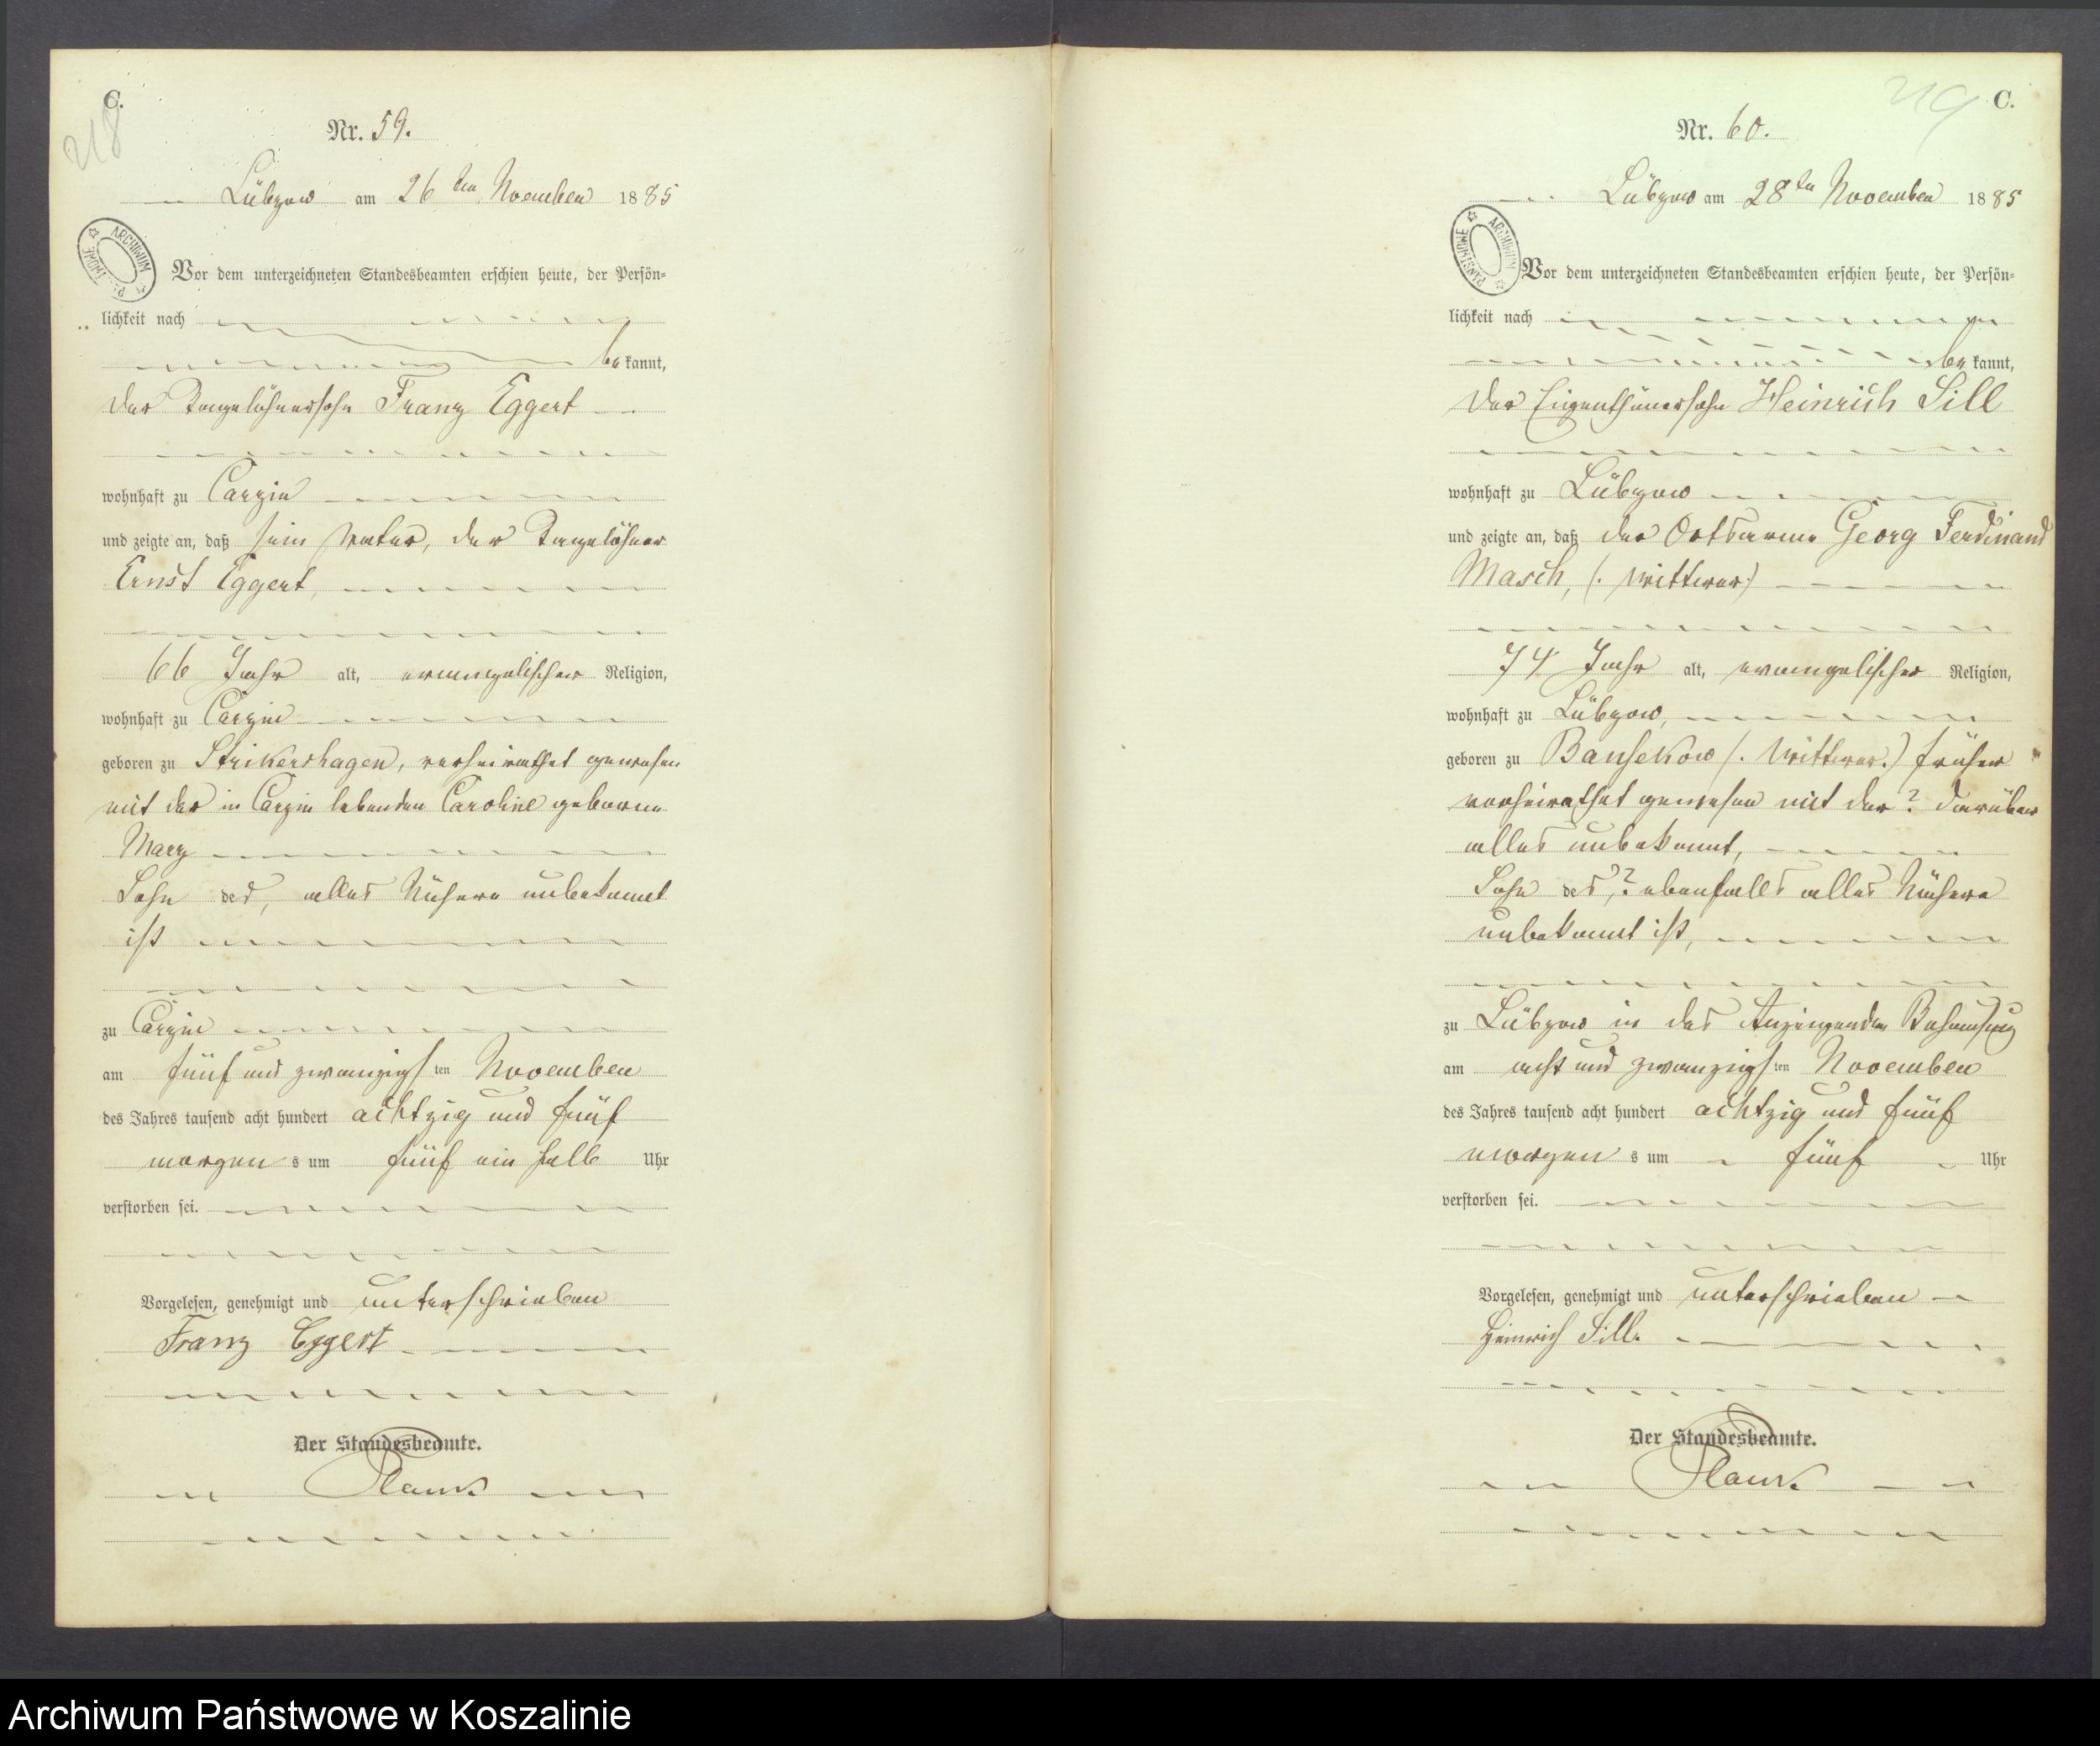 C.
218
Nr. 59.
Lübzow am 26ten November 1885
Vor dem unterzeichneten Standesbeamten erschien heute, der Persön-
lichkeit nach
bekannt,
der Tagelöhnersohn Franz Eggert
wohnhaft zu Carzin
und zeigte an, daß sein Vater, der Tagelöhner
Ernst Eggert,
66 Jahr alt, evangelischer Religion,
wohnhaft zu Carzin
geboren zu Strikershagen, verheirathet gewesen
mit der in Carzin lebenden Caroline geborne
Marz
Sohn des, alles Nähere unbekannt
ist
zu Carzin
am fünf und zwanzigsten November
des Jahres tausend acht hundert achtzig und fünf
morgens um fünf ein halb Uhr
verstorben sei.
Vorgelesen, genehmigt und unterschrieben
Franz Eggert
Der Standesbeamte.
219
C.
Nr. 60.
Lübzow am 28ten November 1885
ARCHIWUM PAŃSTWOWE
Vor dem unterzeichneten Standesbeamten erschien heute, der Persön-
lichkeit nach
bekannt,
der Eigenthümersohn Heinrich Sill
wohnhaft zu Lübzow
und zeigte an, daß der Ortsarme Georg Ferdinand
Masch, (. Wittwer.)
74 Jahr alt, evangelischer Religion,
wohnhaft zu Lübzow,
geboren zu Bansekow (. Wittwer.) früher
verheirathet gewesen mit der? darüber
alles unbekannt,
Sohn des,? ebenfalls alles Nähere
unbekannt ist,
zu Lübzow in des Anzeigenden Behausung
am acht und zwanzigsten November
des Jahres tausend acht hundert achtzig und fünf
morgens um fünf Uhr
verstorben sei.
Vorgelesen, genehmigt und unterschrieben
Heinrich Sill.
Der Standesbeamte.
Archiwum Państwowe w Koszalinie